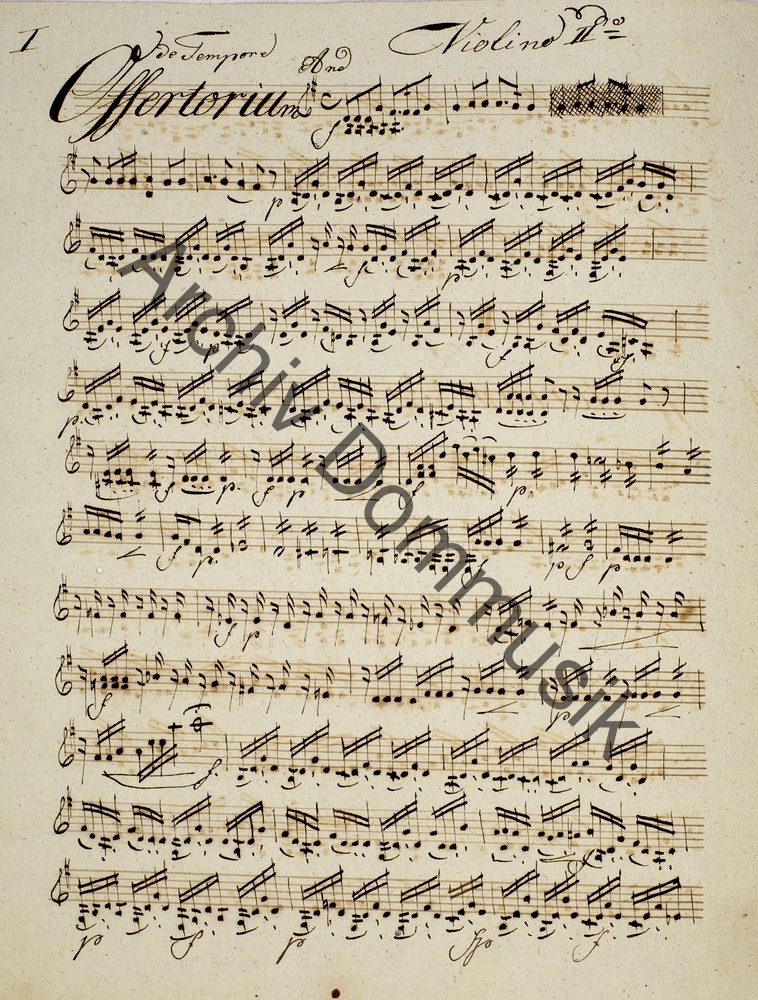 I
De Tempore
Violino IIdo
And
Offertorium
f
p
f
p
f
p
f
f
p
f
p
f
p
f
p
f
p
f
p
f
p
f
p
f
p
f
f
p
f
p
fp
f
Archiv Dommusik